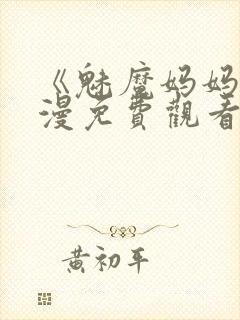 《魅魔妈妈
漫免費觀看
黄初平